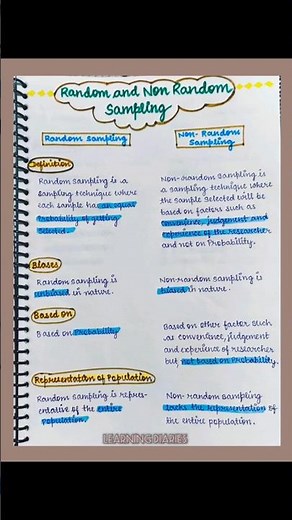 Random and Non Random
Sampling
Random Sampling
Non-Random
Sampling
Definition
Random Sampling is a
Sampling technique where
each sample has an equal
Probability of getting
Selected.
Non-random Sampling is
a sampling technique where
the sample selected will be
based on factors such as
convenience, judgement and
experience of the researcher
and not on Probability.
Biases
Random Sampling is
unbiased in nature.
Non-random sampling is
biased in nature.
Based on
Based on Probability
Based on other factor such
as convenience, judgement
and experience of researcher
but not based on Probability.
Representation of Population
Random sampling is repres-
entative of the entire
population.
Non-random sampling
lacks the representation of
the entire population.
LEARNING DIARIES